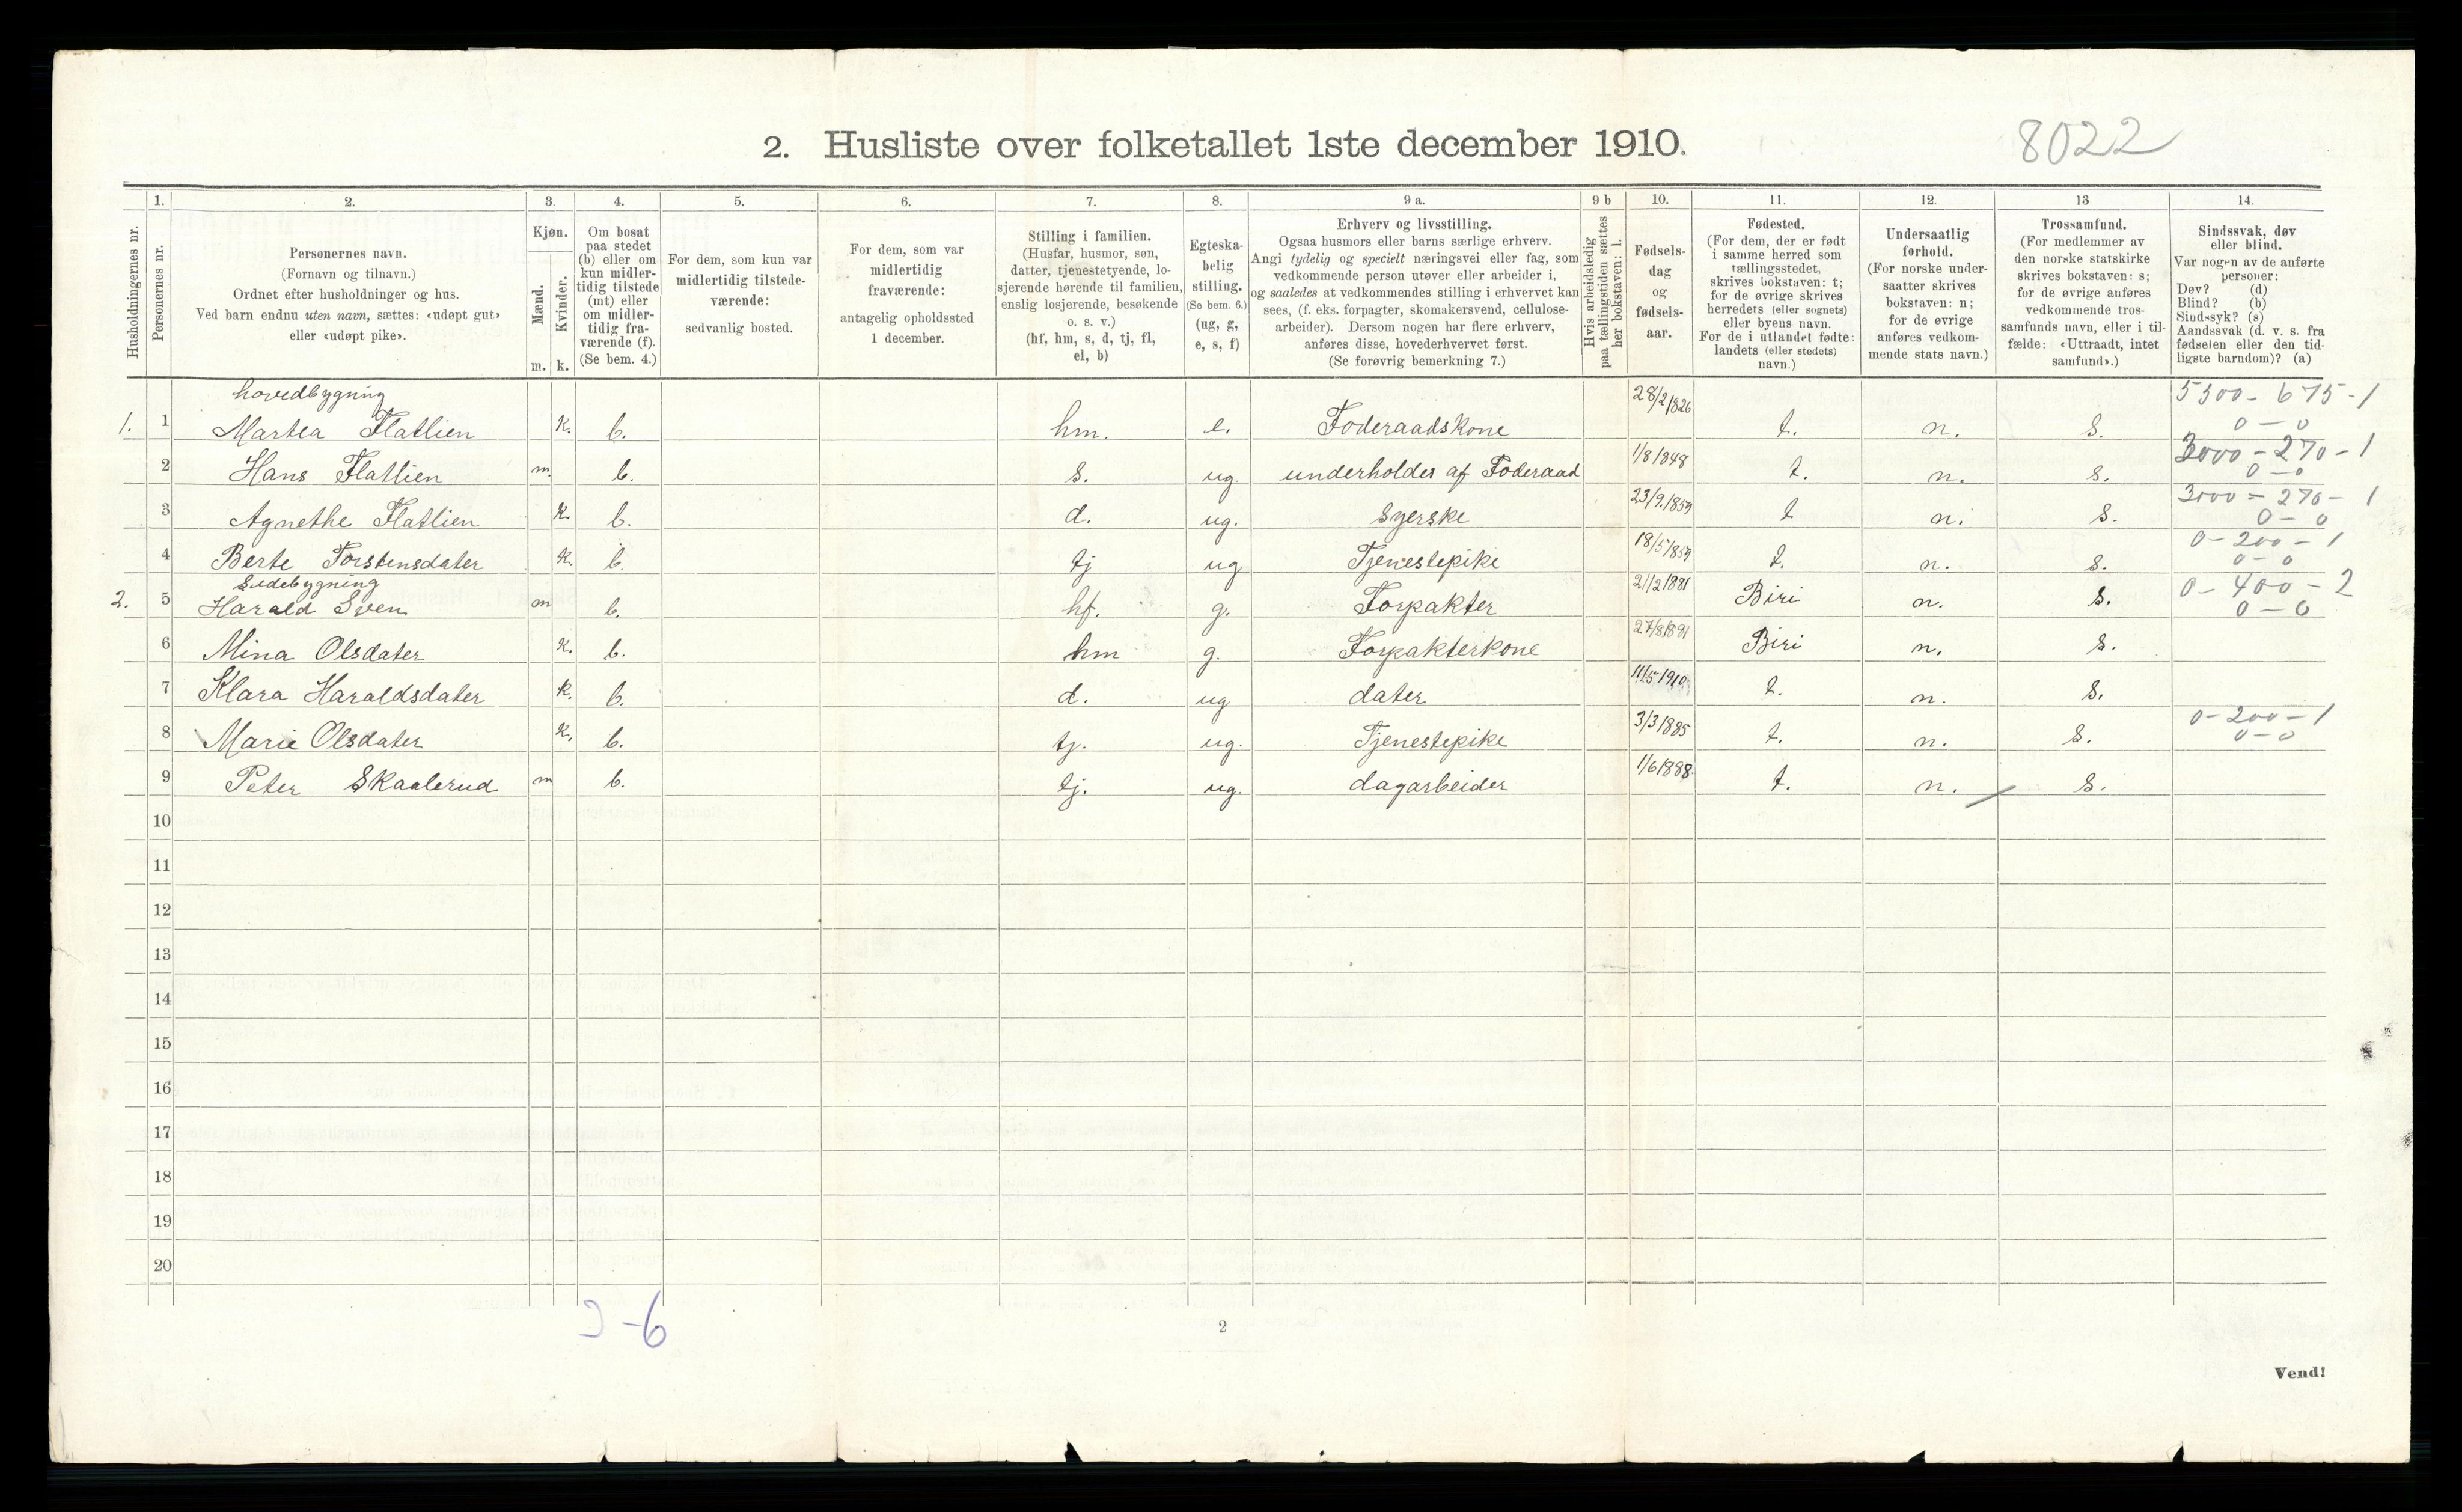 8022
2. Husliste over folketallet 1ste december 1910.
Husholdningernes nr.
1. Personernes nr.
2. Personernes navn. (Fornavn og tilnavn.) Ordnet efter husholdninger og hus. Ved barn endnu uten navn, sættes: «udøpt gut» eller «udøpt pike».
3. Kjøn. Mænd. m. Kvinder. k.
4. Om bosat paa stedet (b) eller om kun midlertidig tilstede (mt) eller om midlertidig fraværende (f). (Se bem. 4.)
5. For dem, som kun var midlertidig tilstedeværende: sedvanlig bosted.
6. For dem, som var midlertidig fraværende: antagelig opholdssted 1 december.
7. Stilling i familien. (Husfar, husmor, søn, datter, tjenestetyende, losjerende hørende til familien, enslig losjerende, besøkende o. s. v.) (hf, hm, s, d, tj, fl, el, b)
8. Egteskabelig stilling. (Se bem. 6.) (ug, g, e, s, f)
9 a. Erhverv og livsstilling. Ogsaa husmors eller barns særlige erhverv. Angi tydelig og specielt næringsvei eller fag, som vedkommende person utøver eller arbeider i, og saaledes at vedkommendes stilling i erhvervet kan sees, (f. eks. forpagter, skomakersvend, cellulosearbeider). Dersom nogen har flere erhverv, anføres disse, hovederhvervet først. (Se forøvrig bemerkning 7.)
9 b Hvis arbeidsledig paa tællingstiden sættes her bokstaven: l.
10. Fødselsdag og fødselsaar.
11. Fødested. (For dem, der er født i samme herred som tællingsstedet, skrives bokstaven: t; for de øvrige skrives herredets (eller sognets) eller byens navn. For de i utlandet fødte: landets (eller stedets) navn.)
12. Undersaatlig forhold. (For norske undersaatter skrives bokstaven: n; for de øvrige anføres vedkommende stats navn.)
13 Trossamfund. (For medlemmer av den norske statskirke skrives bokstaven: s; for de øvrige anføres vedkommende trossamfunds navn, eller i tilfælde: «Uttraadt, intet samfund».)
14. Sindssvak, døv eller blind. Var nogen av de anførte personer: Døv? (d) Blind? (b) Sindssyk? (s) Aandssvak (d. v. s. fra fødselen eller den tidligste barndom)? (a)
hovedbygning
1. 1 Martea Flatlien k. b. hm. e. Foderaadskone 28/2 1826 t. n. s. 5300 - 675 - 1 0 - 0
2 Hans Flatlien m. b. s. ug. underholdes af Foderaad 1/8 1848 t. n. s. 3000 - 270 - 1 0 - 0
3 Agnethe Flatlien k. b. d. ug. Syerske 23/9.1859 t n. s. 3000 - 270 - 1 0 - 0
4 Berte Torstensdater k. b. tj ug Tjenestepike 18/5 1859 t. n. s. 0 - 200 - 1 0 - 0
Sidebygning
2. 5 Harald Sven m b. hf. g. Forpakter 21/2 1881 Biri n. s. 0 - 400 - 2 0 - 0
6 Mina Olsdater k. b. hm g. Forpakterkone 27/8 1891 Biri n. s.
7 Klara Haraldsdater k. b. d. ug dater 11/5 1910 t. n. s.
8 Marie Olsdater k. b. tj. ug. Tjenestepike 3/3 1885 t. n. s. 0 - 200 - 1 0 - 0
9 Peter Skaalerud m b. tj. ug. dagarbeider 1/6 1888. t. n. s.
10
11
12
13
14
15
16
17
18
19
20
-6
2
Vend!